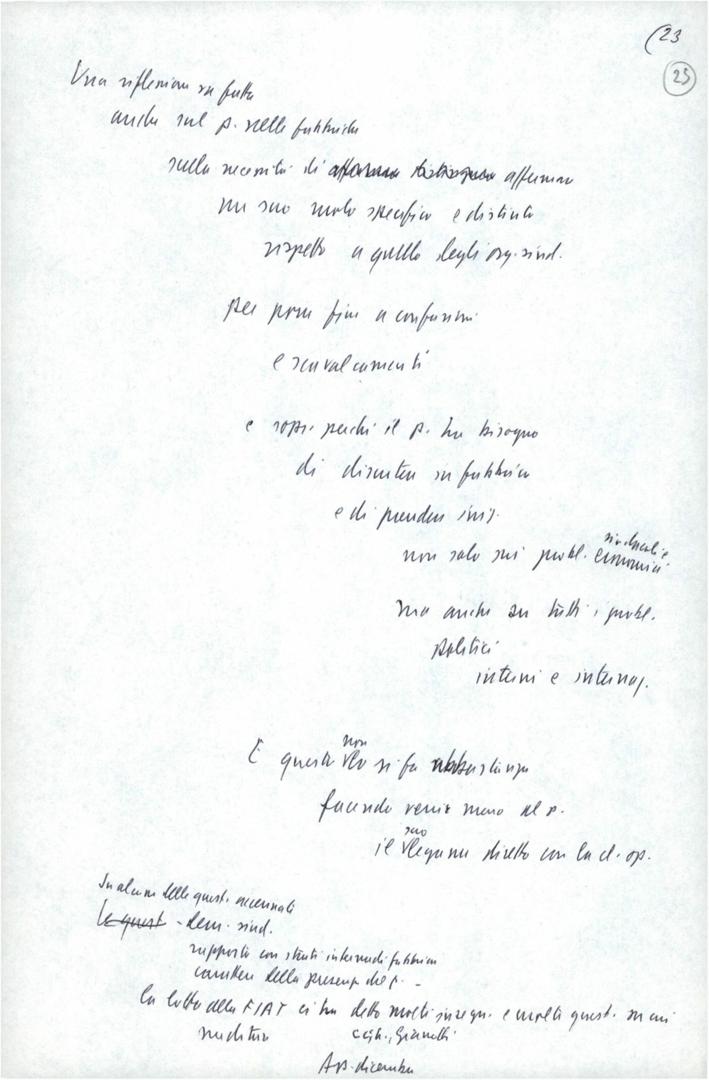 (23
25
Una riflessione va fatta
anche sul p. nelle fabbriche
sulla necessità di affermare
un suo ruolo specifico e distinto
rispetto a quello degli org. sind.
per porre fine a confusioni
e scavalcamenti
e sopr. perché il p. ha bisogno
di discutere in fabbrica
e di prendere iniz.
non solo sui probl. sindacali e economici
ma anche su tutti i probl.
politici
interni e internaz.
E questo non lo si fa abbastanza
facendo venir meno al p.
il suo legame diretto con la cl. op.
Su alcune delle quest. accennate
Le quest - dem. sind.
rapporto con strati intermedi fabbrica
carattere della presenza del p. -
La lotta alla FIAT ci ha dato molti insegn. e molte quest. su cui
meditare
Ass. dicembre